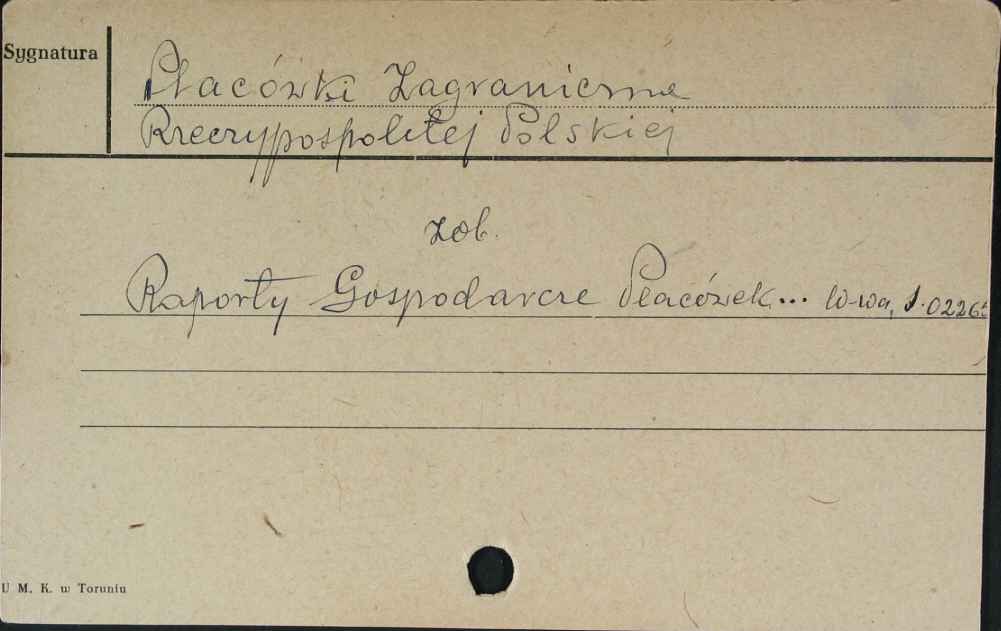 Sygnatura
Placówki Zagraniczne
Rzeczypospolitej Polskiej
zob.
Raporty Gospodarcze Placówek... W-wa, S.02265
U M. K. w Toruniu